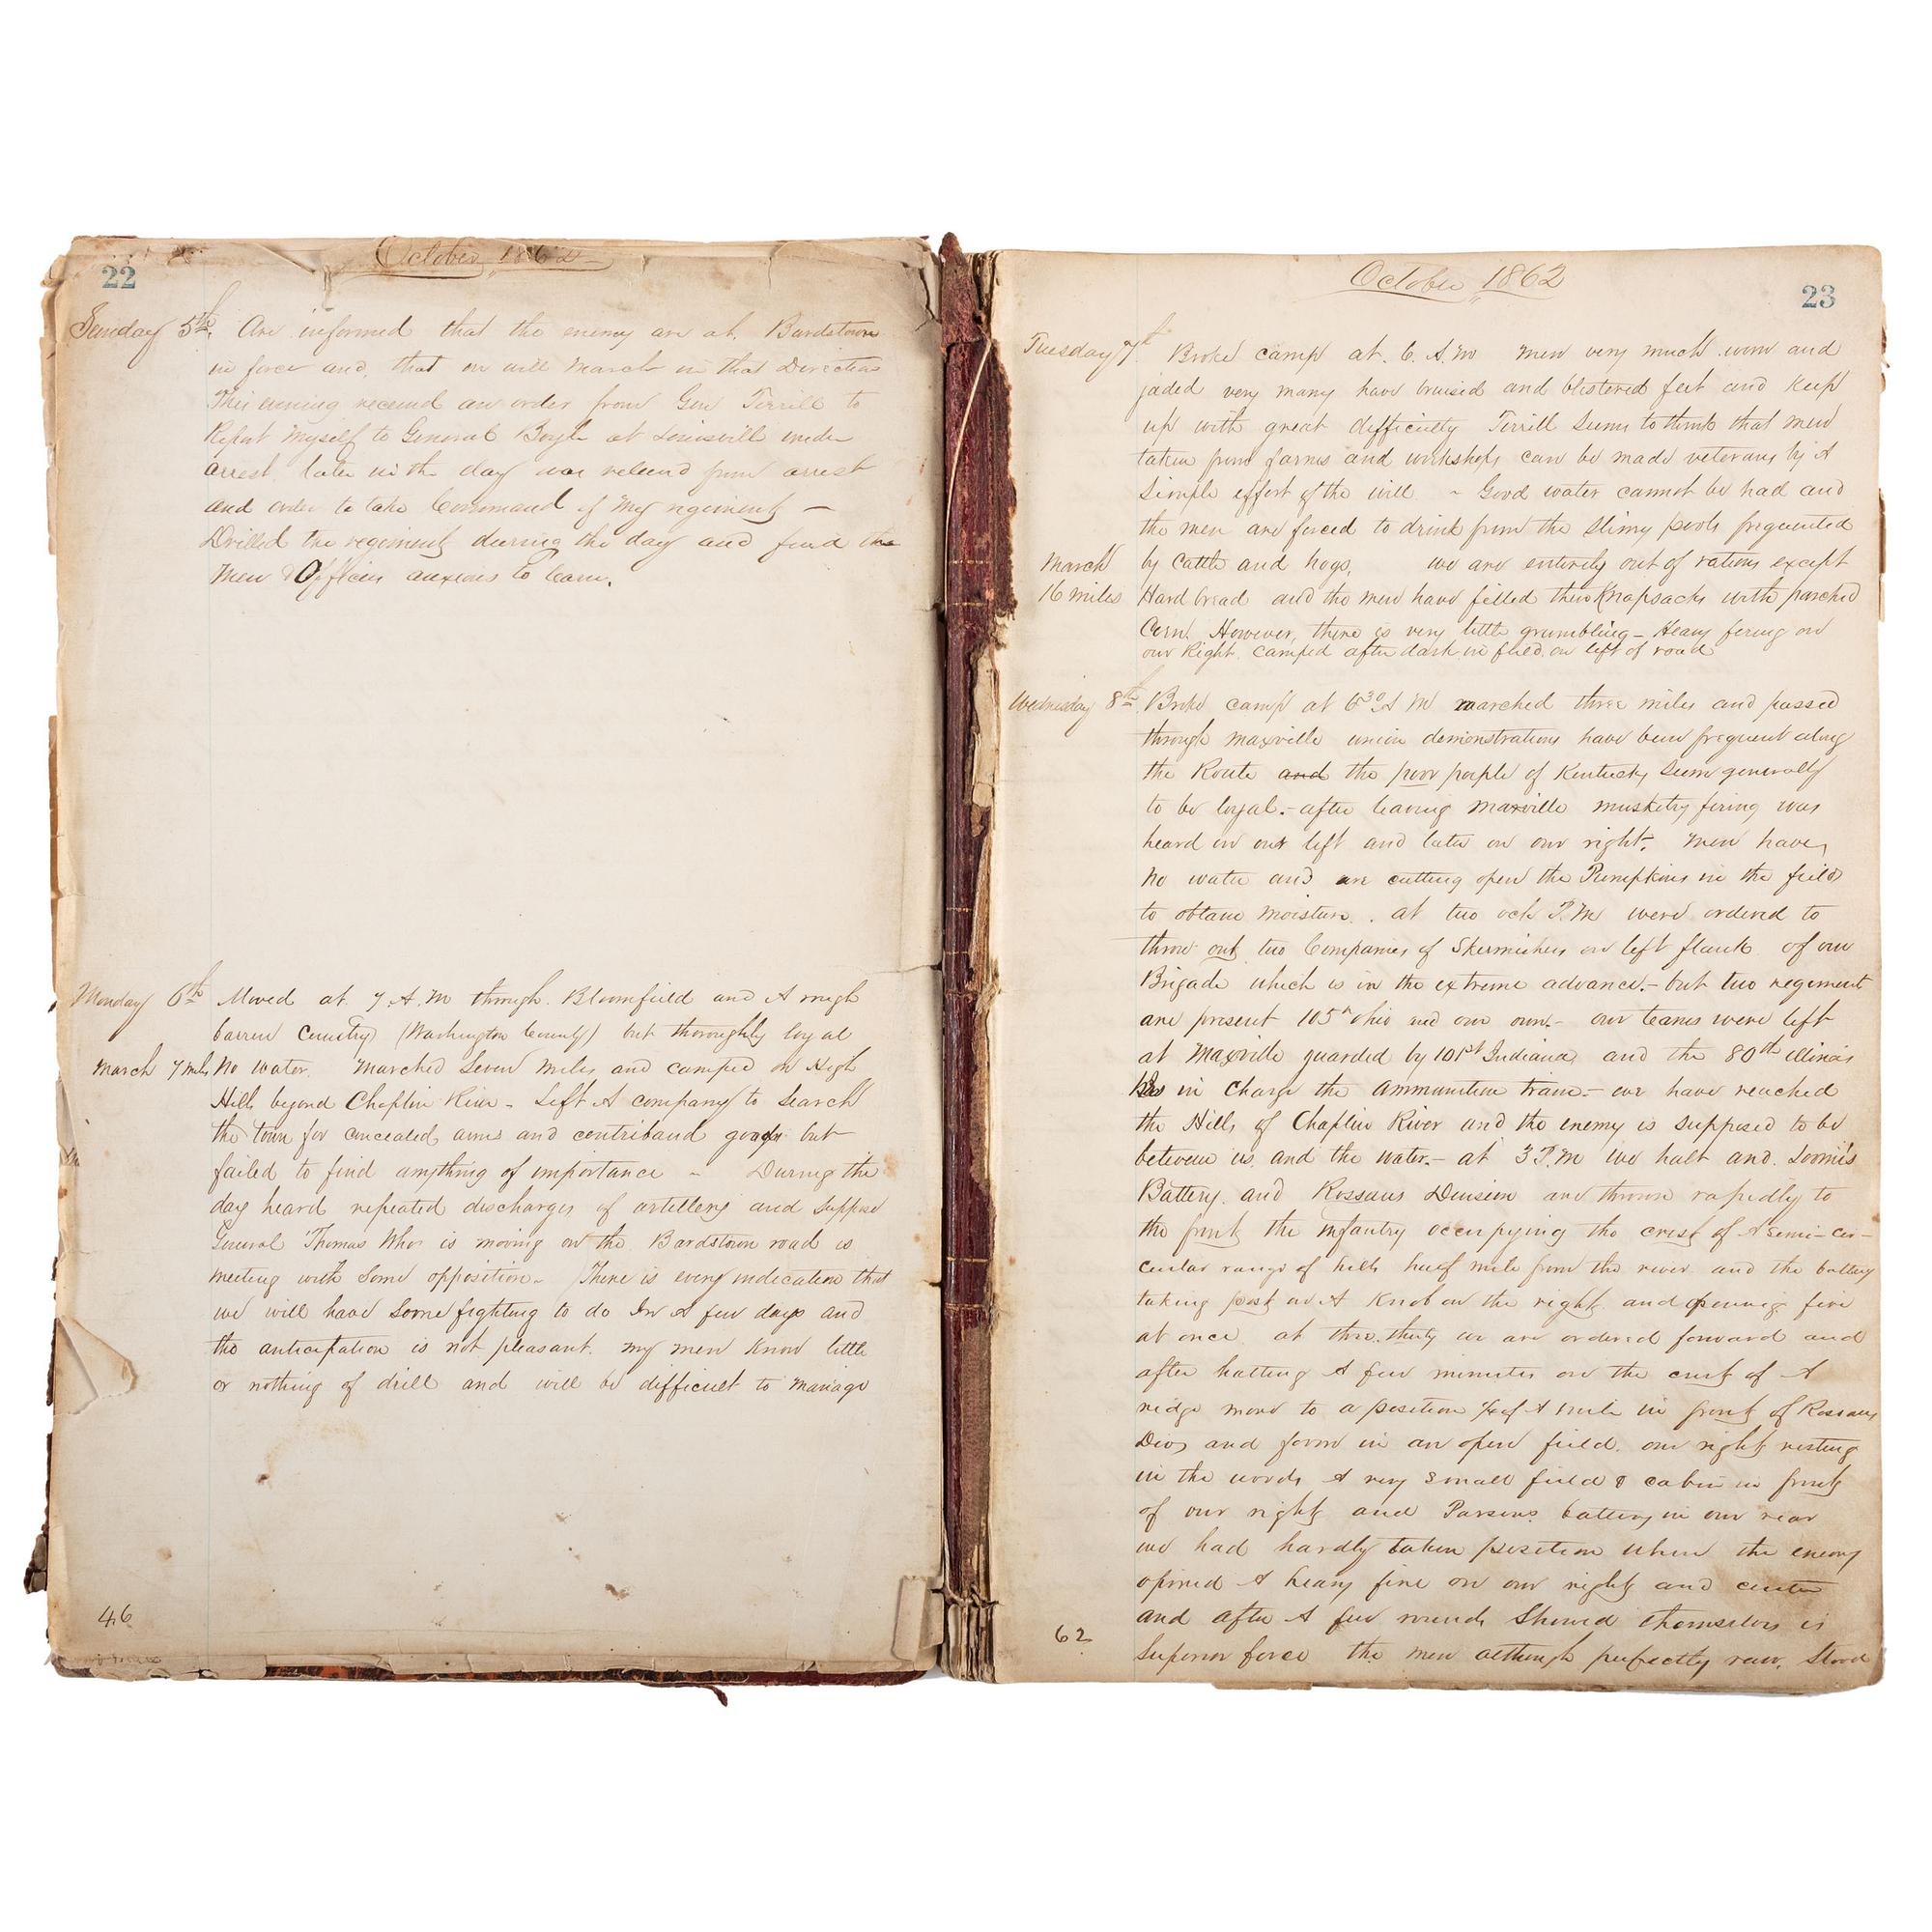 22
October 1862
Sunday 5th. Are informed that the enemy are at Bardstown
in force and that we will march in that Direction
This evening received an order from Gen Terrill to
Report myself to General Boyle at Louisvill under
arrest later in the day was released from arrest
and order to take Command of my regiment —
Drilled the regiment during the day and find the
men & Officers anxious to learn.
Monday 6th Moved at 7. A. M through Bloomfield and A rough
barren Country (Washington County) but thoroughly loyal
March 7 miles No water. Marched Seven miles and camped on High
Hill beyond Chaplin River – Left A company to Search
the town for concealed arms and contriband goods but
failed to find anything of importance – During the
day heard repeated discharges of artillery and suppose
General Thomas Who is moving on the Bardstown road is
meeting with Some opposition – There is every indication that
we will have Some fighting to do In A few days and
the anticipation is not pleasant. my men Know little
or nothing of drill and will be difficult to manage
46
October 1862
23
Tuesday 7th Broke camp at 6. A. M men very much worn and
jaded very many have bruised and blistered feet and Keep
up with great difficulty Terrill Seems to think that men
taken from farms and workshops can be made veterans by A
Simple effort of the will – Good water cannot be had and
the men are forced to drink from the slimy pools frequented
March by Cattle and hogs. we are entirely out of rations except
16 miles Hard bread and the men have filled their Knapsacks with parched
Corn. However, there is very little grumbling – Heavy firing on
our Right. Camped after dark in field on left of road
Wednesday 8th Broke camp at 6 30 A M marched three miles and passed
through Maxville union demonstrations have been frequent along
the Route and the poor people of Kentucky Seem generally
to be loyal. – after leaving Maxville musketry firing was
heard on our left and later on our right. Men have
No water and are cutting open the Pumpkins in the field
to obtain moisture. at two ock P.M were ordered to
throw out two Companies of Skirmishers on left flank of our
Brigade which is in the extreme advance. – but two regiment
are present 105th Ohio and our own. – our teams were left
at Maxville guarded by 101st Indiana and the 80th illinois
in Charge the Ammunition train. – we have reached
the Hills of Chaplin River and the enemy is supposed to be
between us and the water. – at 3 P.M we halt and Loomis
Battery and Rossaus Division are thrown rapidly to
the front the infantry occupying the crest of A Semi-cir-
cular range of hills half mile from the river and the battery
taking post on A Knob on the right and opening fire
at once at three thirty we are ordered forward and
after halting A few minutes on the crest of A
ridge move to a position of A mile in front of Rossaus
Divs and form in an open field. our right resting
in the woods A very Small field & cabin in front
of our right and Parsons battery in our rear
we had hardly taken position when the enemy
opened A heavy fire on our right and center
and after A few rounds Showed themselves in
Superior force the men although perfectly raw, Stood
62